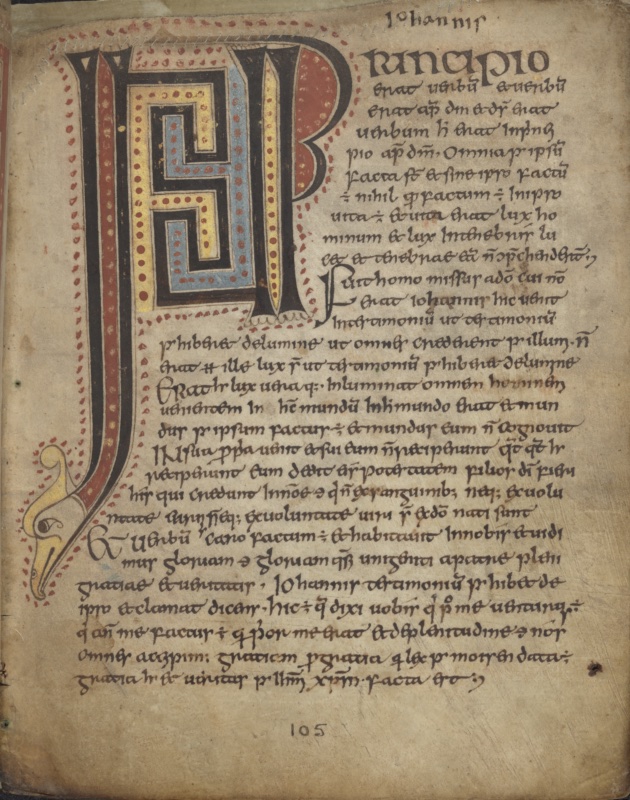 Iohannis
IN PRincipio
erat uerbū & uerbū
erat ap̄ dm̄ & dr̄ erat
uerbum h̄ erat Inprin
pio ap̄ dm̄. Omnia p ipsū
facta st̄ & sine ipso factū
÷ nihil qd factum ÷ Inipso
uita ÷ & uita erat lux ho
minum & lux Intenebris lu
c& & tenebrae eā n̄ cp̄chenderūt
Fuit homo missus adō cui nō
erat iohannis hic uenit
Intestamoniū ut testamoniū
phiberet delumine ut omnes crederent p illum. n̄
erat ille lux s̄ ut testamoniū phiberet delumine
Erat hr lux uera q: Inluminat omnem hominem
uenientem In hc̄ mundū Inhmundo erat & mun
dus p ipsum factus ÷ & mundus eum n̄ cognouit
INsua pp̄a uenit & sui eum n̄ reciperunt qt̄ qt̄ hr
reciperunt eum dedit eis potestatem filios dī fieri
his qui credunt Innōe q̄ n̄ exsanguinib; neq; exuolu
ntate carnis neq; exuoluntate uiri s̄ exdō nati sunt
Et uerbū caro factum ÷ & habitauit Innobis & uidi
mus gloriam gloriam qsi unigeniti apatre pleni
gratiae & ueritatis. Iohannis testamoniū phibet de
ipso & clamat dicens. hic ÷ q̄ dixi uobis q̄ pō me uenturus ÷
q̄ an̄ me factus ÷ q p̄or me erat & deplenitudine nos
omnes accipim; gratiam pgratia q lex p moisen data ÷
gratia hr & ueritas p Ihm̄ xpm̄. facta est
105